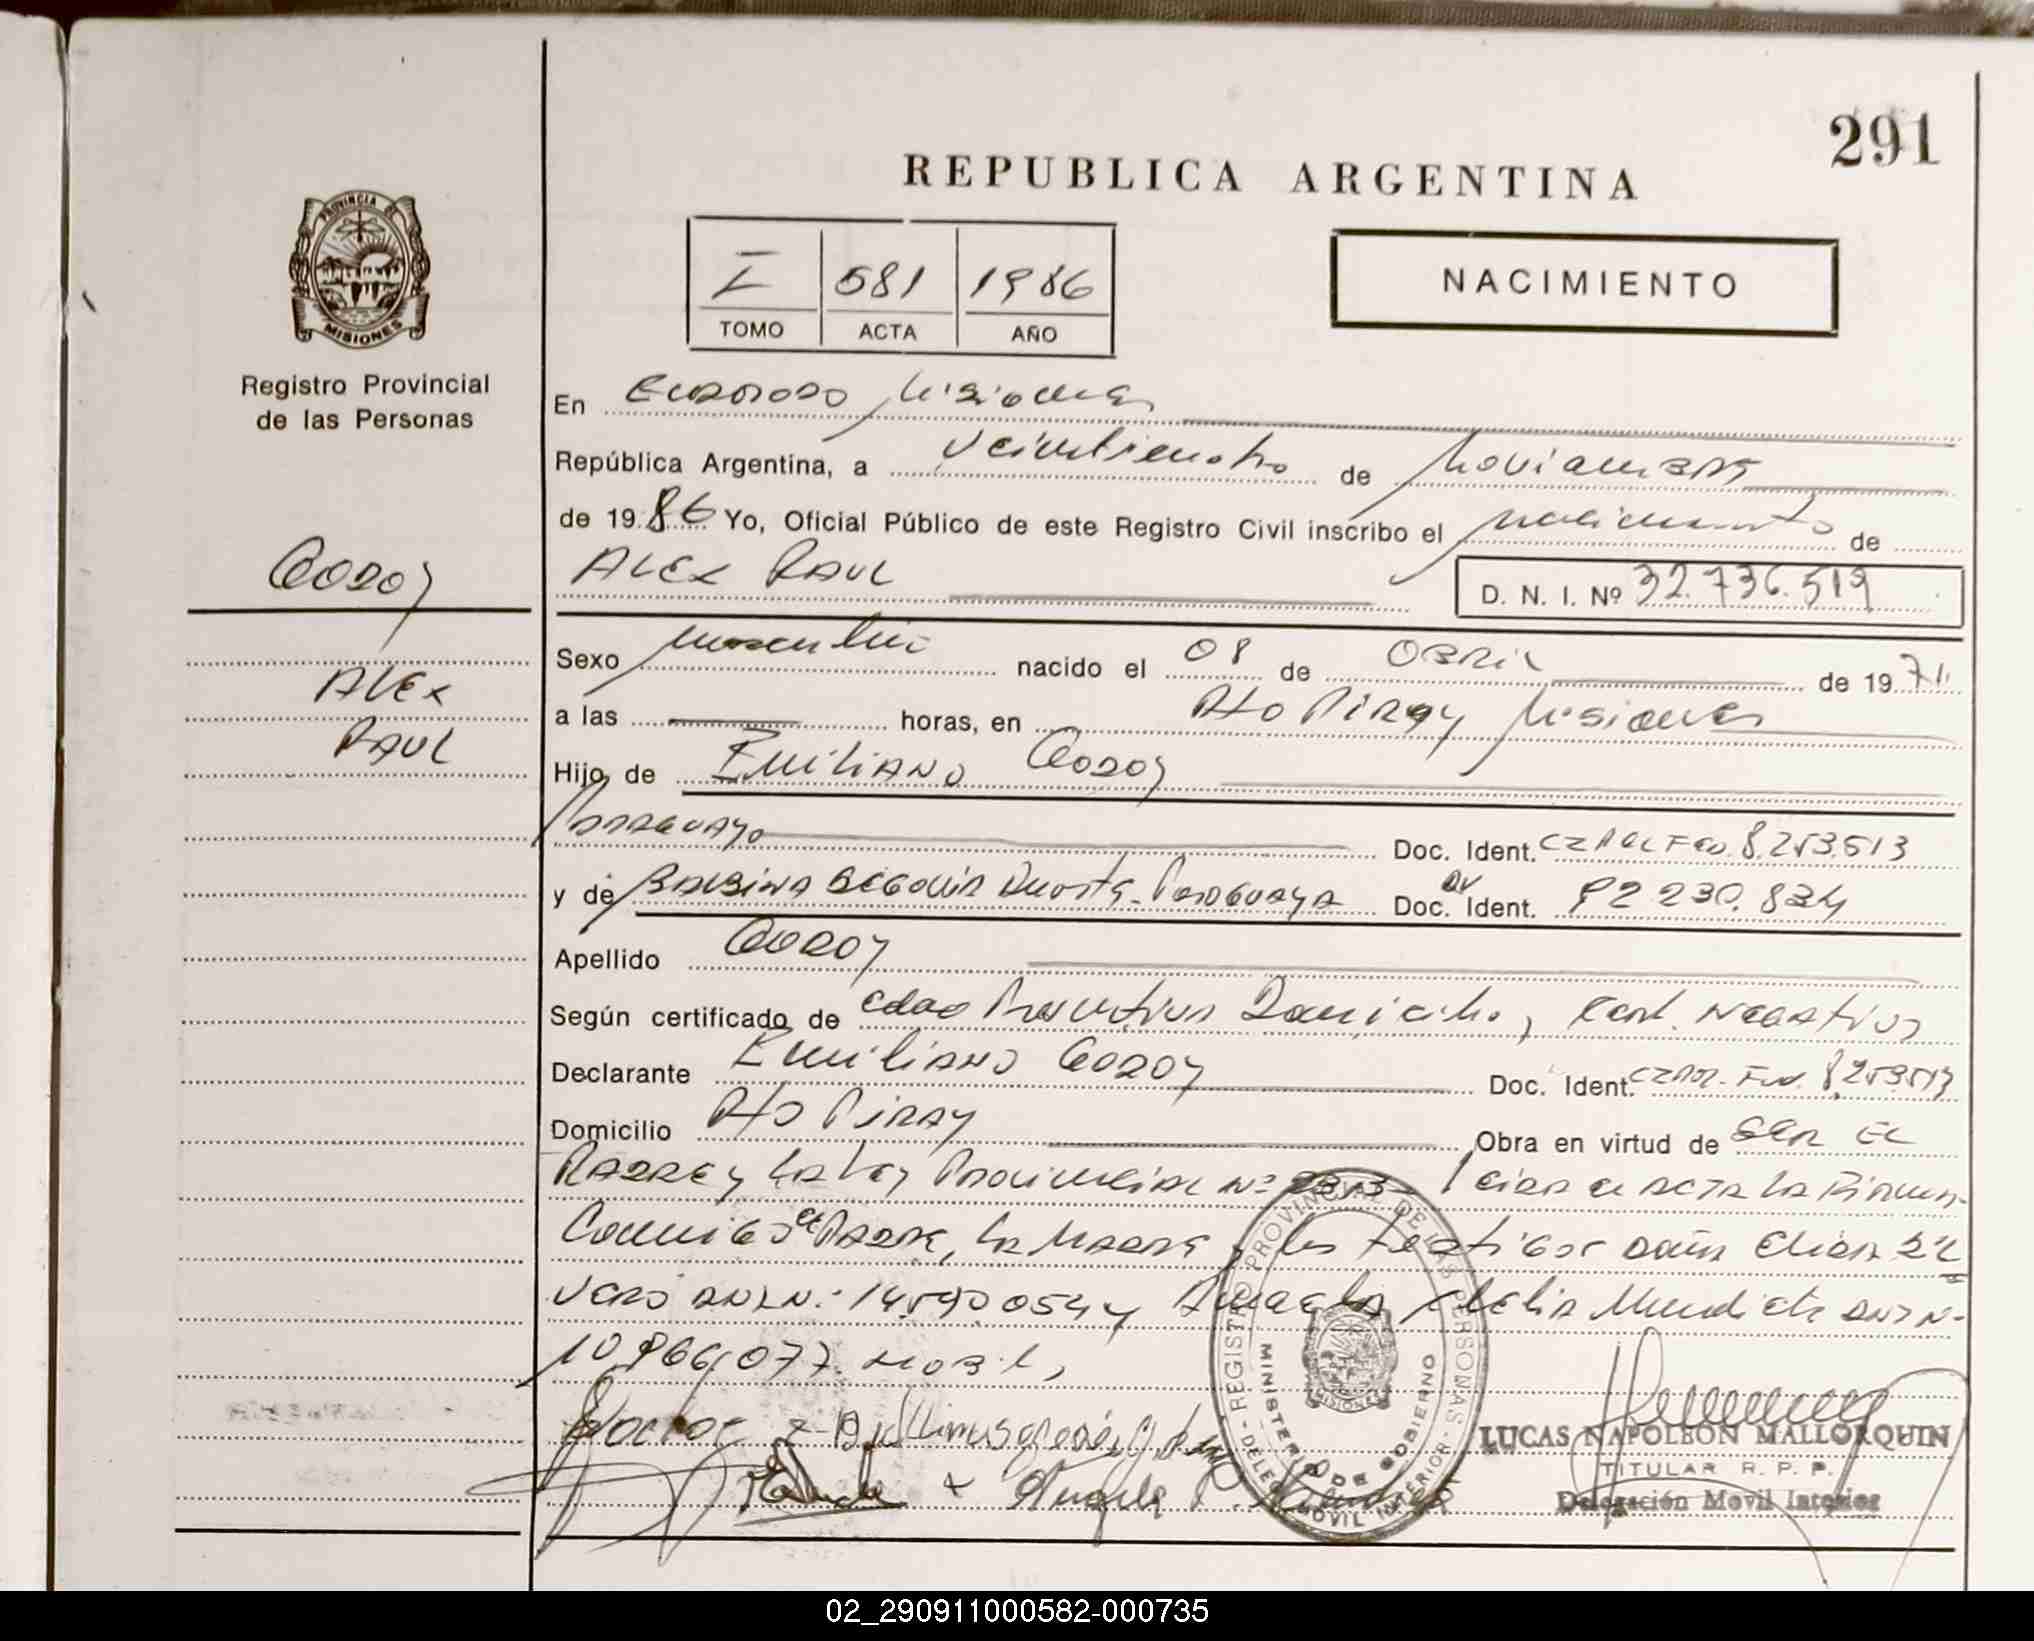 291
REPUBLICA ARGENTINA
PROVINCIA DE
MISIONES
I 581 1986
TOMO ACTA AÑO
NACIMIENTO
Registro Provincial
de las Personas
En Eldorado Misiones
República Argentina, a veinticuatro de Noviembre
de 1986 Yo, Oficial Público de este Registro Civil inscribo el nacimiento de
Godoy
ALEX RAUL
D. N. I. Nº 32.736.519
ALEX
RAUL
Sexo masculino nacido el 08 de ABRIL de 1971
a las horas, en Pto Piray Misiones
Hijo de Emiliano Godoy
Paraguayo Doc. Ident. 8.253.513
y de Balbina Paraguaya Doc. Ident. 92 230.834
Apellido Godoy
Según certificado de edad Presuntiva Domicilio, Cert. Negativo
Declarante Emiliano Godoy Doc. Ident. 8253513
Domicilio Pto Piray Obra en virtud de SER EL
PADRE y la Ley Provincial Nº la Firman
Conmigo el Padre, la Madre y los Testigos
DNI N: y Mendieta DNI N-
10.866.077.
REGISTRO PROVINCIAL DE LAS PERSONAS
MINISTERIO DE GOBIERNO
DELEG. MOVIL INTERIOR
MISIONES
LUCAS NAPOLEON MALLORQUIN
TITULAR R. P. P.
Delegación Movil Interior
02_290911000582-000735